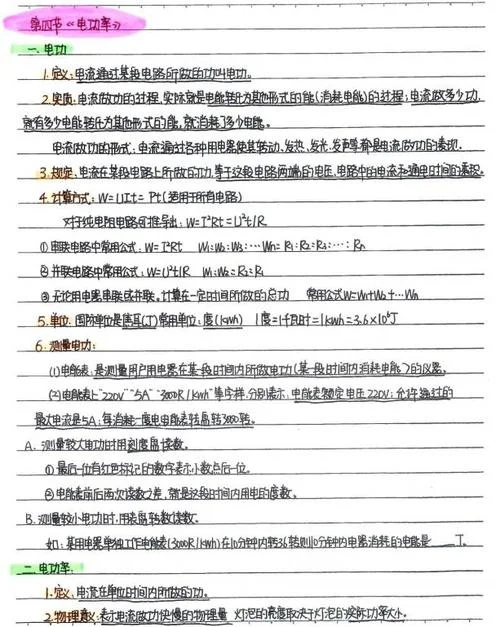 第四节《电功率》
一. 电功
1. 定义: 电流通过某段电路所做的功叫电功。
2. 实质: 电流做功的过程, 实际就是电能转化为其他形式的能(消耗电能)的过程; 电流做多少功,
就有多少电能转化为其他形式的能, 就消耗了多少电能。
电流做功的形式: 电流通过各种用电器使其转动、发热、发光、发声等都是电流做功的表现。
3. 规定: 电流在某段电路上所做的功, 等于这段电路两端的电压, 电路中的电流和通电时间的乘积。
4. 计算方式: W=UIt=Pt(适用于所有电路)
对于纯电阻电路可推导出: W=I²Rt=U²t/R
① 串联电路中常用公式: W=I²Rt W₁:W₂:W₃:…Wn=R₁:R₂:R₃:…:Rn
② 并联电路中常用公式: W=U²t/R W₁:W₂=R₂:R₁
③ 无论用电器串联或并联。计算在一定时间所做的总功 常用公式W=W₁+W₂+…Wn
5. 单位: 国际单位是焦耳(J)常用单位: 度(kwh) 1度=1千瓦时=1kwh=3.6×10⁶J
6. 测量电功:
(1) 电能表: 是测量用户用电器在某一段时间内所做电功(某一段时间内消耗电能)的仪器。
(2) 电能表上"220V""5A""3000R/kwh"等字样, 分别表示: 电能表额定电压220V; 允许通过的
最大电流是5A; 每消耗一度电电能表转盘转3000转。
A. 测量较大电功时用刻度盘读数。
① 最后一位有红色标记的数字表示小数点后一位。
② 电能表前后两次读数之差, 就是这段时间内用电的度数。
B. 测量较小电功时, 用表盘转数读数。
如: 某用电器单独工作电能表(3000R/kwh)在10分钟内转36转则10分钟内电器消耗的电能是____J。
二. 电功率:
1. 定义: 电流在单位时间内所做的功。
2. 物理意义: 表示电流做功快慢的物理量 灯泡的亮度取决于灯泡的实际功率大小。